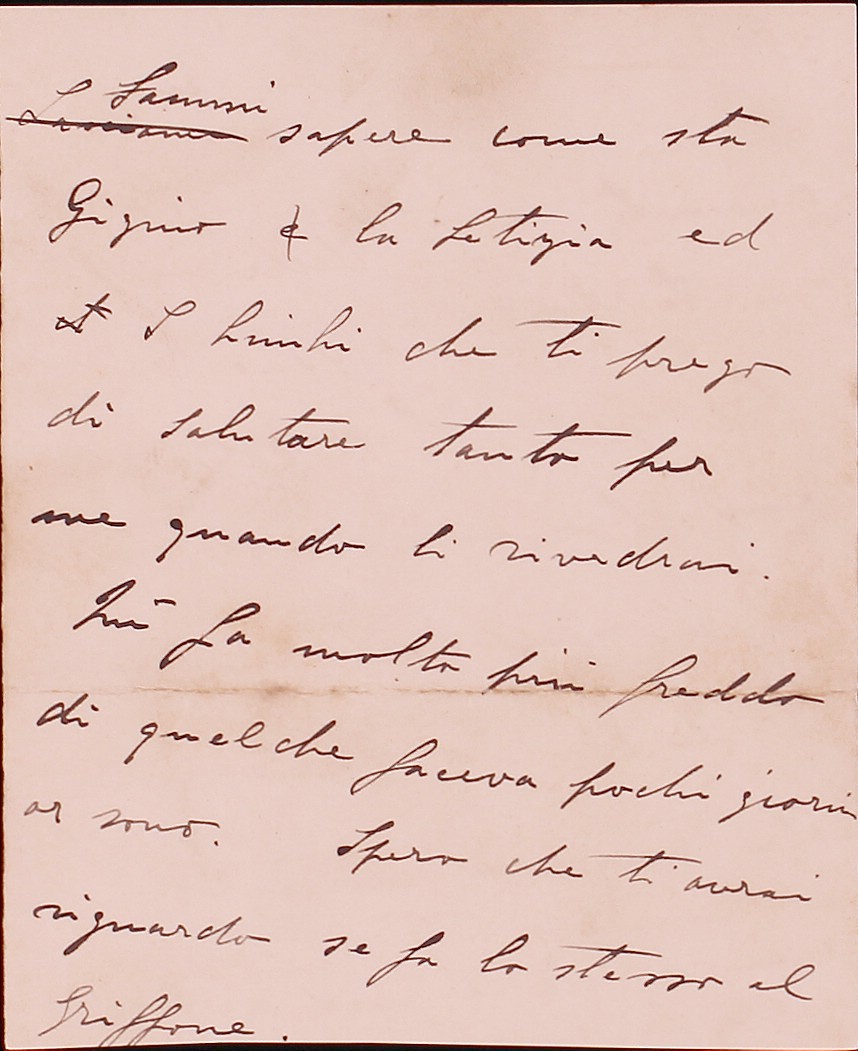 Fammi
sapere come sta
Gigino e la Letizia ed
I che ti prego
di salutare tanto per
me quando li rivedrai.
Quì fa molto più freddo
di quel che faceva pochi giorni
or sono. Spero che ti avrai
riguardo se fa lo stesso al
Griffone.